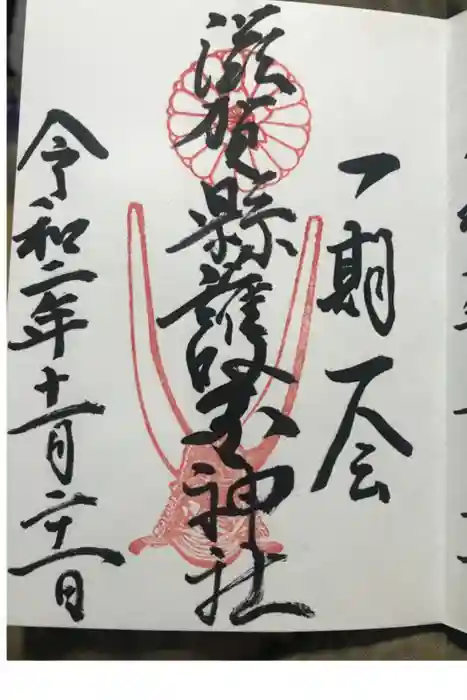 一期一会
滋賀縣護国神社
令和二年十一月二十一日